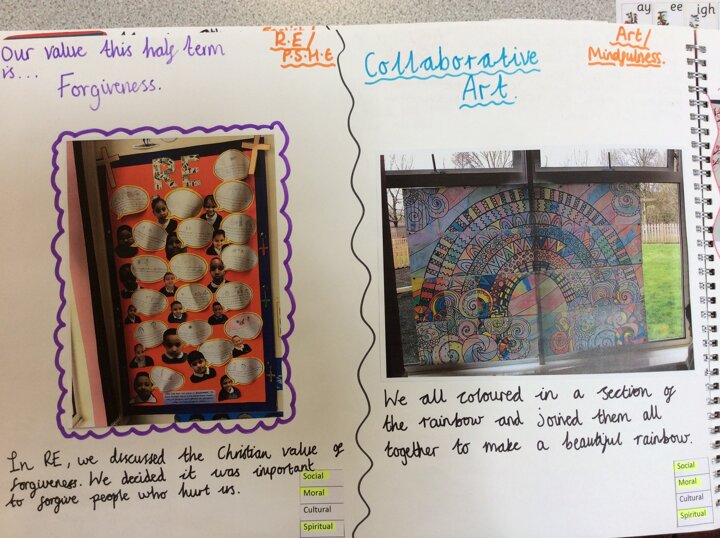 ay ee igh
Our value this half term
is...
Forgiveness.
R.E/
P.S.H.E
RE
In RE, we discussed the Christian value of
forgiveness. We decided it was important
to forgive people who hurt us.
Social
Moral
Cultural
Spiritual
Collaborative
Art.
Art/
Mindfulness.
We all coloured in a section of
the rainbow and joined them all
together to make a beautiful rainbow.
Social
Moral
Cultural
Spiritual